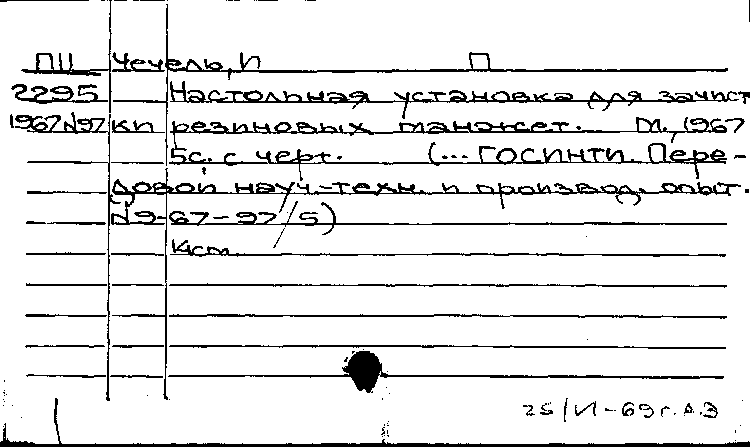 ПЦ Чечель, И П
2295 Настольная установка для зачист
1967 №97 ки резиновых манжет. М., 1967
5с. с черт. (... ГОСИНТИ. Пере-
довой науч.-техн. и производ. опыт.
№9-67-97/5)
25/VI-69г. А.Э